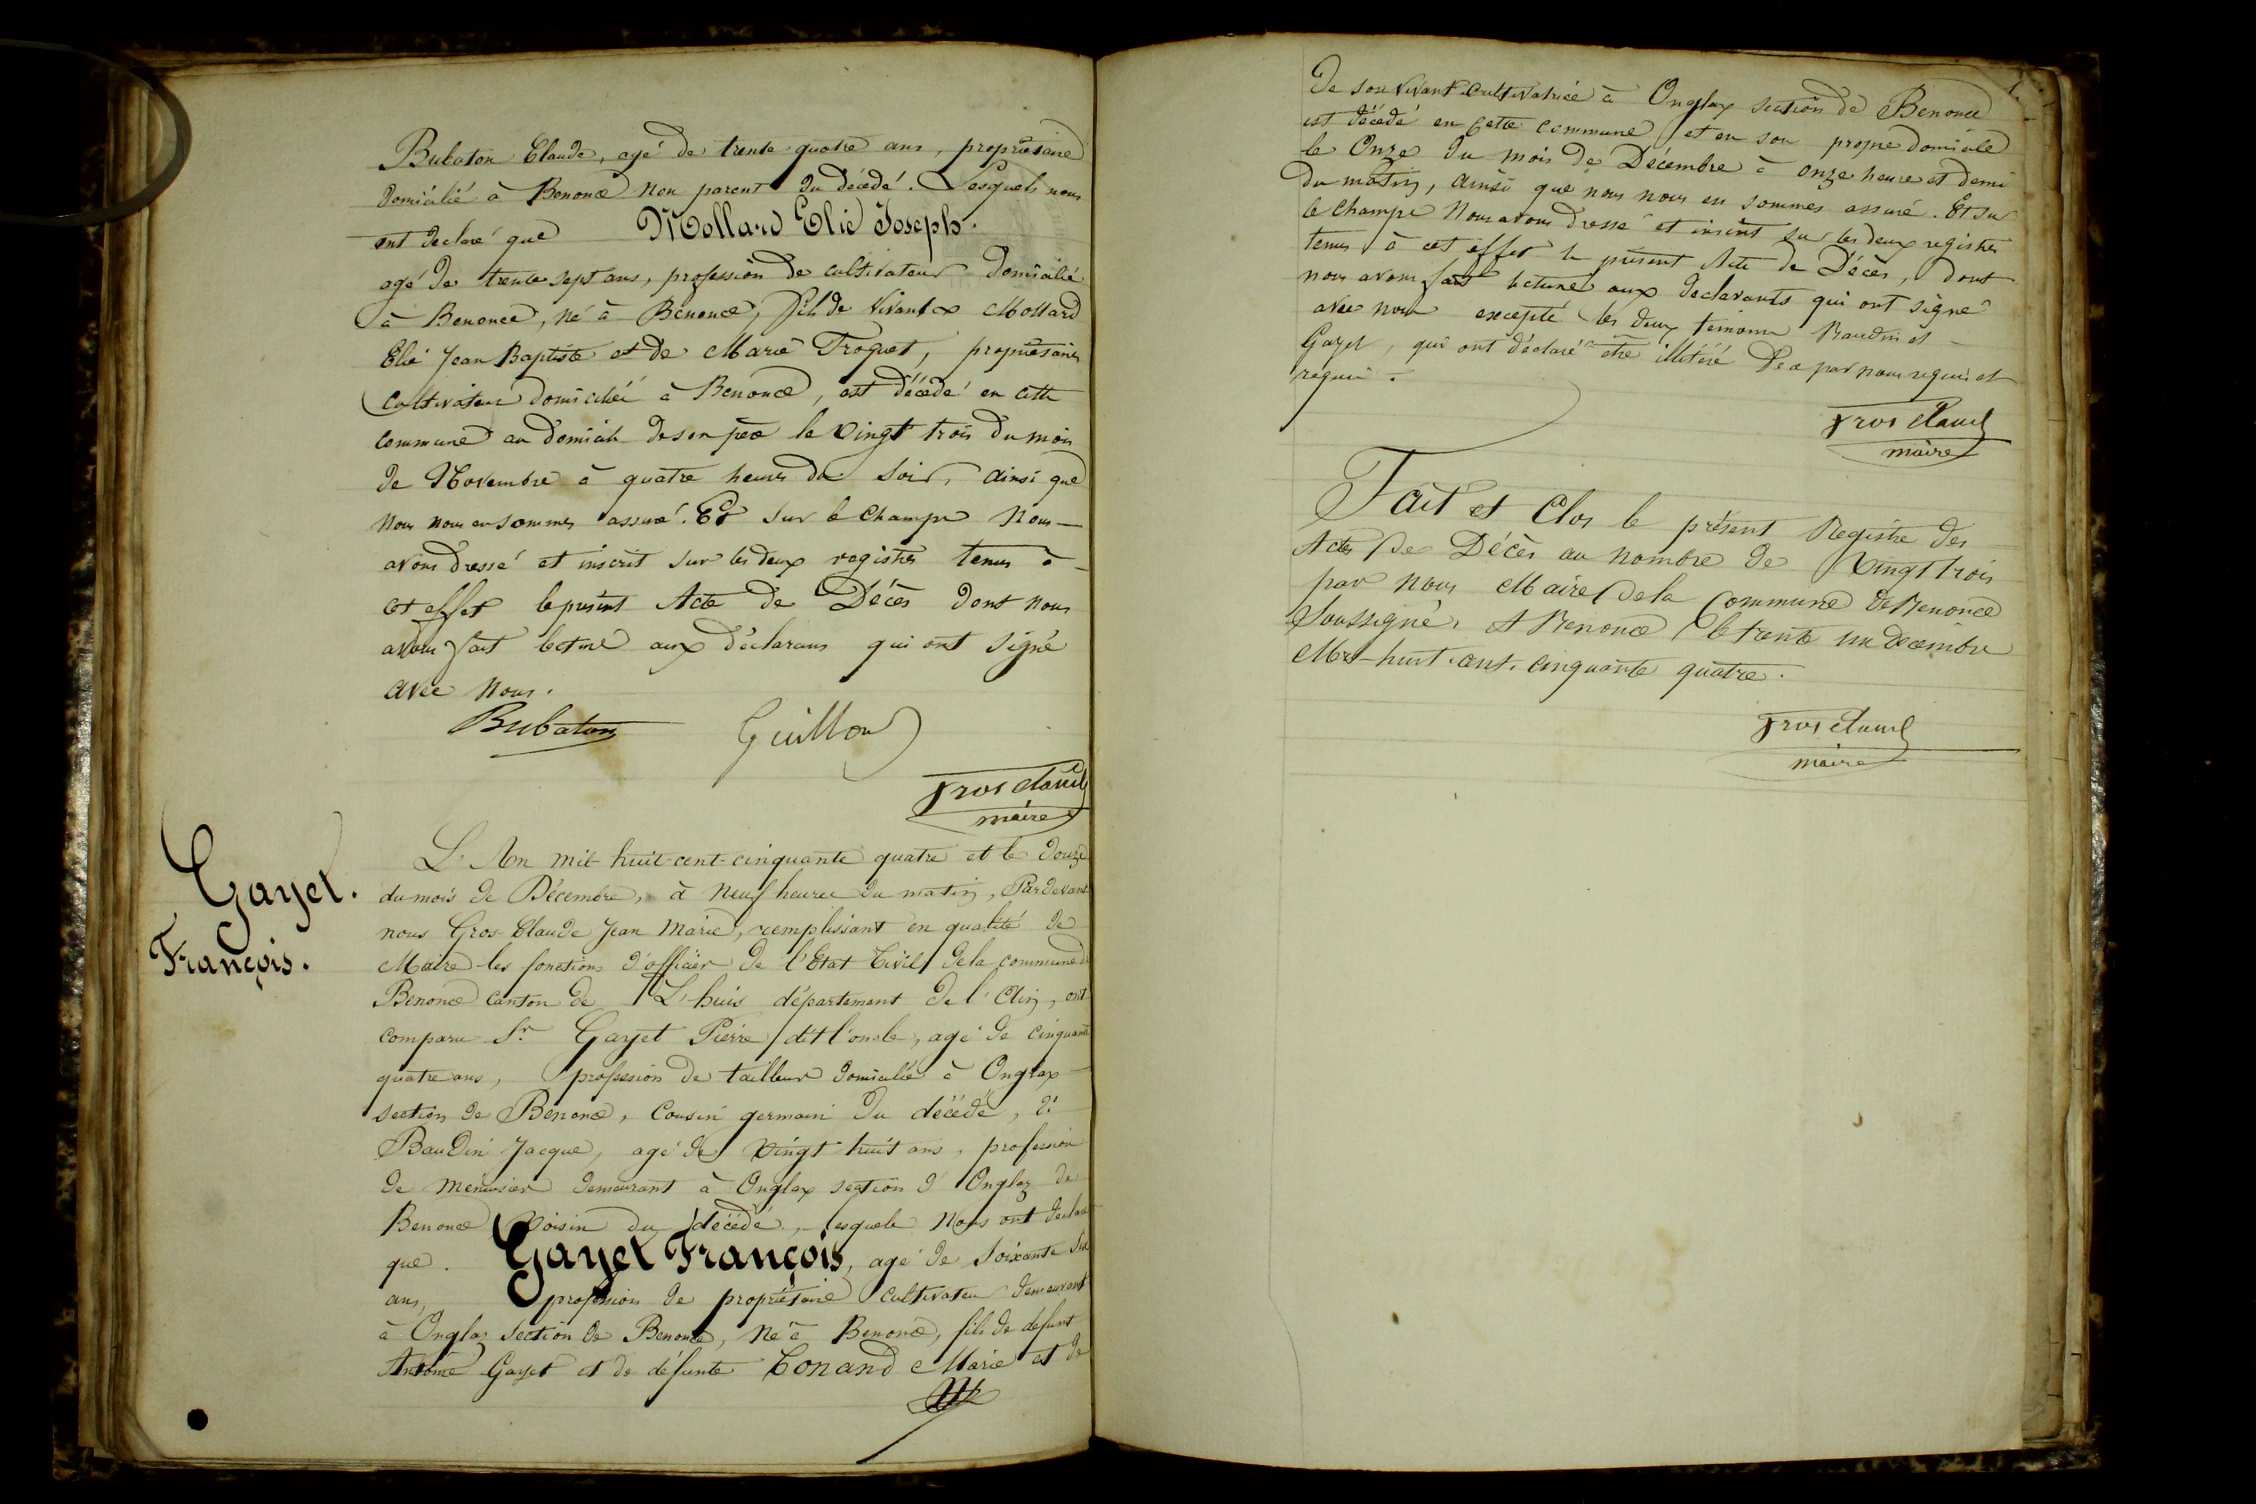 Bubaton Claude, agé de trente quatre ans, propriétaire
domicilié à Benonce non parent du décedé. Lesquels nous
ont declaré que Mollard Elie Joseph.
agé de trente sept ans, profession de cultivateur domicilié
à Benonce, né à Bénonce, fils de vivants Mollard
Elie Jean Baptiste et de Marie Troguet, propriétaires
cultivateurs domiciliés à Benonce, est décédé en cette
commune au domicile de son père le vingt trois du mois
de Novembre à quatre heures du soir, ainsi que
nous nous en sommes assuré. Et sur le champs nous
avons dressé et inscrit sur les deux registres tenus à
cet effet le présent Acte de Décès dont nous
avons fait lecture aux déclarans qui ont signé
avec nous.
Bubaton Guillon
Gros Claude
maire
Gayet.
François.
L'An mil huit-cent-cinquante quatre et le douze
du mois de Décembre, à neuf heures du matin, Pardevant
nous Gros-Claude Jean Marie, remplissant en qualité de
Maire les fonctions d'officier de l'Etat Civil de la commune de
Benonce canton de L'huis département de l'Ain, ont
comparu Sr. Gayet Pierre dit l'oncle, agé de cinquante
quatre ans, profession de tailleur domicilié à Onglax
section de Benonce, Cousin germain du décédé, et
Baudin Jacque, agé de vingt huit ans, profession
de menuisier demeurant à Onglax section d'Onglas de
Benonce voisin du décédé, lesquels nous ont declaré
que Gayet François, agé de soixante six
ans, profession de propriétaire cultivateur demeurant
à Onglas section de Benonce, né à Benonce, fils de défunt
Antoine Gayet et de défunte Conand Marie et de
De son vivant cultivatrice à Onglax section de Benonce
est décédé en cette commune et en son propre domicile
le Onze du mois de Décembre à onze heure et demi
du matin, ainsi que nous nous en sommes assuré. Et sur
le champs nous avons dressé et inscrit sur les deux registres
tenus à cet effet le présent Acte de Décès, dont
nous avons fait lecture aux declarants qui ont signé
avec nous excepté les deux témoins Baudin et
Gayet, qui ont déclaré être illétéré De ce par nous requis et
requis.
Gros Claude
maire
Fait et Clos le présent Registre des
Actes de Décès au nombre de Vingt trois
par nous Maire de la Commune de Benonce
Soussigné. A Benonce le trente un décembre
Mil-huit-cent-cinquante quatre.
Gros Claude
maire